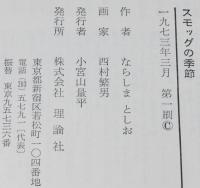 スモッグの季節
一九七三年三月　第一刷Ⓒ
作者　ならしまとしお
画家　西村繁男
発行者　小宮山量平
発行所　株式会社　理論社
東京都新宿区若松町一〇四番地
電話（国）五七九一［代表］
振替　東京九五七三六番